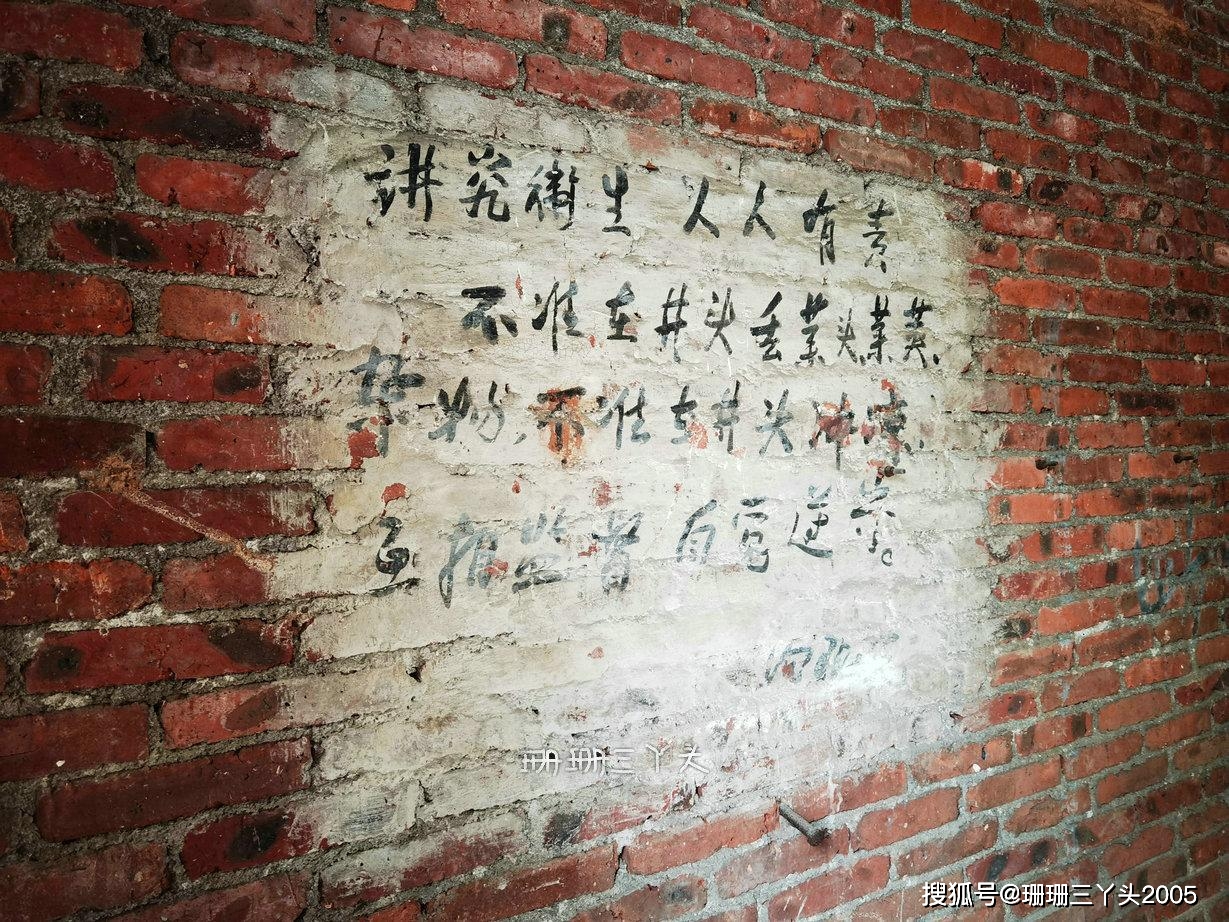 讲究衛生 人人有责
不准在井头丢菜头菜菜
物,不准在井头冲凉
互相监督自觉遵
珊珊三丫头
搜狐号@珊珊三丫头2005